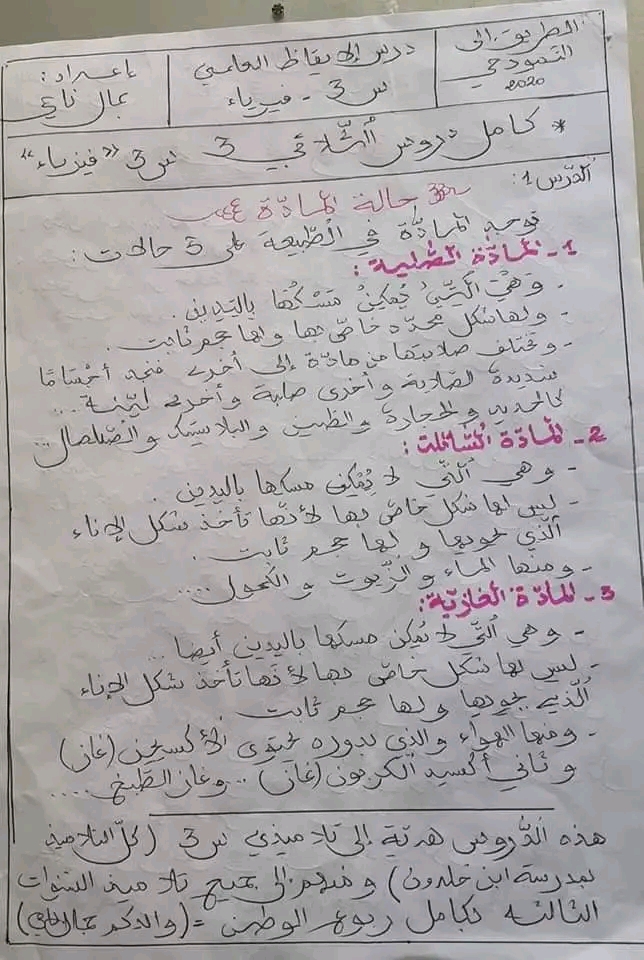 الطريق إلى
النموذجي
2020
درس الإيقاظ العلمي
س 3 - فيزياء
إعداد:
جمال
* كامل دروس الثّلاثي 3 س 3 "فيزياء"
الدّرس 1:
حالة المادّة
توجد المادّة في الطّبيعة على 3 حالات:
1- المادّة الصّلبة:
- وهي الّتي يُمكن مَسْكُها باليدين.
- ولها شكل محدّد خاصّ بها ولها حجم ثابت.
- وتختلف صلابتها من مادّة إلى أخرى فنجد أجسامًا
شديدة الصّلابة وأخرى صلبة وأخرى ليّنة...
كالحديد والحجارة والطين والبلاستيك والصّلصال...
2- المادّة السّائلة:
- وهي الّتي لا يُمكن مسكها باليدين.
- ليس لها شكل خاصّ بها لأنّها تأخذ شكل الإناء
الّذي يحويها ولها حجم ثابت.
- ومنها الماء والزّيوت والكحول....
3- المادّة الغازيّة:
- وهي الّتي لا يُمكن مسكها باليدين أيضا...
- ليس لها شكل خاصّ بها لأنّها تأخذ شكل الإناء
الّذي يحويها ولها حجم ثابت.
- ومنها الهواء والذي بدوره يحتوي الأكسجين (غاز)
وثاني أكسيد الكربون (غاز)... وغاز الطّبخ....
هذه الدّروس هديّة إلى تلاميذي س 3 (كلّ التلاميذ
بمدرسة ابن خلدون) ومنهم إلى جميع تلاميذ السّنوات
الثالثة بكامل ربوع الوطن = (والدكم جمال)